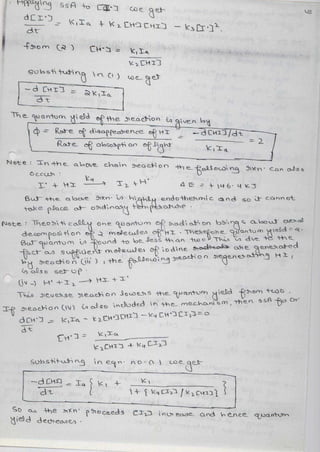 Applying SSA to [I•] we get
d[I•]/dt = K₁Ia + K₂[H•][HI] - K₃[I•]².
from (2) [H•] = K₁Ia / K₂[HI]
Substituting in (1) we get
-d[HI]/dt = 2K₁Ia
The quantum yield of the reaction is given by
ϕ = Rate of disappearence of HI / Rate of absorption of light = -d[HI]/dt / K₁Ia = 2
Note: In the above chain reaction the following rxn. can also
occur:
I• + HI K₄→ I₂ + H• ΔE = +146.4 KJ
But the above rxn. is highly endothermic and so it cannot
take place at ordinary temperature.
Note: Theoritically one quantum of radiation brings about
decomposition of 2 molecules of HI. Therefore quantum yield = 2.
But quantum is found to be less than two. This is due to the
fact as sufficient molecules of iodine are generated
by reaction (iii), the following reaction regenerating HI,
is also set up.
(iv) H• + I₂ → HI + I•
This reverse reaction lowers the quantum yield from two.
If reaction (iv) is also included in the mechanism, then SSA for
d[H•]/dt = K₁Ia - K₂[H•][HI] - K₄[H•][I₂] = 0
[H•] = K₁Ia / K₂[HI] + K₄[I₂]
Substituting in eqn. no. 1 we get
-d[HI]/dt = Ia { K₁ + K₁ / 1 + {K₄[I₂] / K₂[HI]} }
So as the rxn. proceeds [I₂] increase and hence quantum
yield decreases.